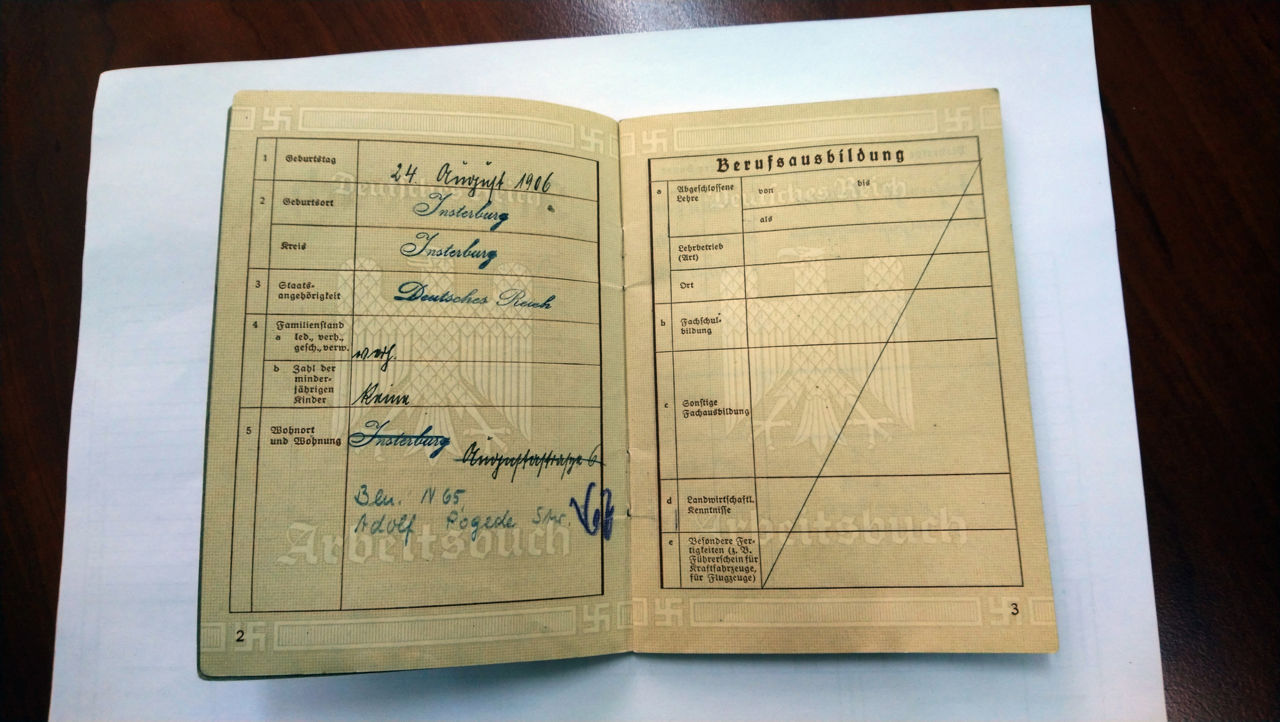 1 Geburtstag 24. August 1906
2 Geburtsort Insterburg
Kreis Insterburg
3 Staats-
angehörigkeit Deutsches Reich
4 Familienstand
a led., verh.,
gesch., verw. verh.
b Zahl der
minder-
jährigen
Kinder Keine
5 Wohnort
und Wohnung Insterburg
Augustastraße 6
Bln. N 65,
Adolf Str.
Deutsches Reich
Arbeitsbuch
2
Berufsausbildung
a Abgeschlossene
Lehre von bis
als
Lehrbetrieb
(Art)
Ort
b Fachschul-
bildung
c Sonstige
Fachausbildung
d Landwirtschaftl.
Kenntnisse
e Besondere Fer-
tigkeiten (z. B.
Führerschein für
Kraftfahrzeuge,
für Flugzeuge)
Deutsches Reich
Arbeitsbuch
3